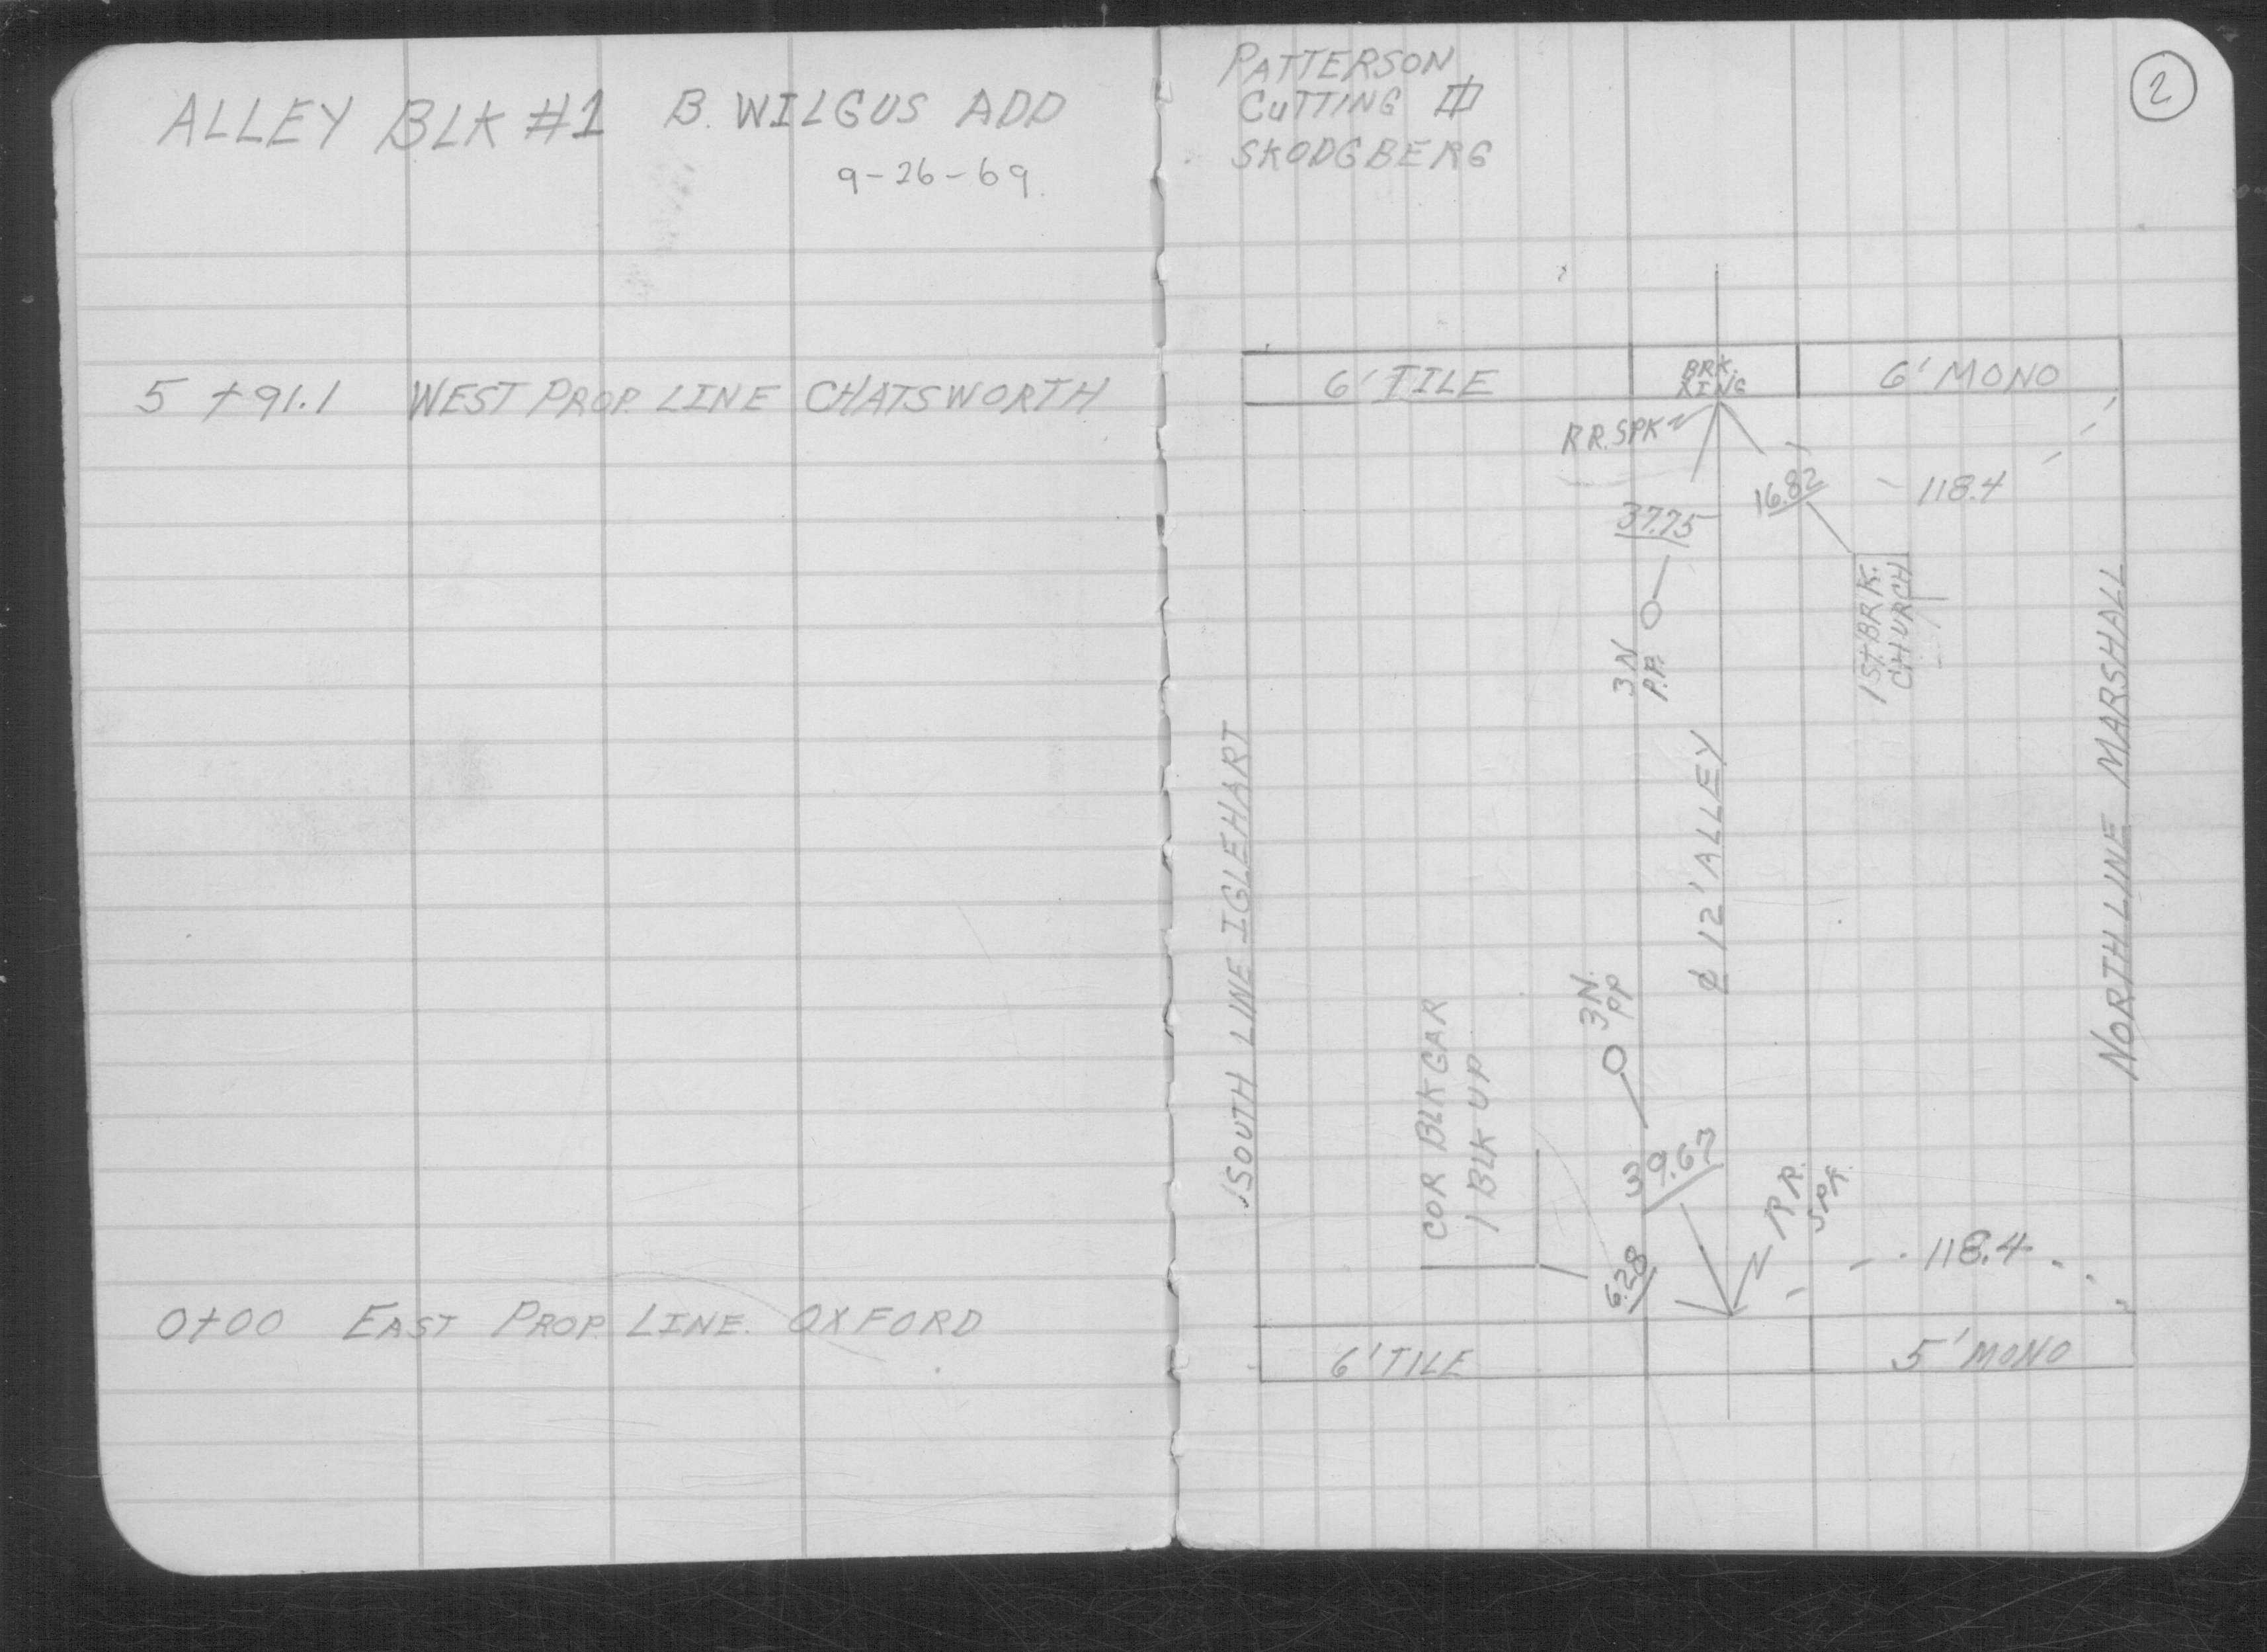 ALLEY BLK #1 B. WILGUS ADD
9-26-69.
5 +91.1 WEST PROP. LINE CHATSWORTH
0+00 EAST PROP. LINE. OXFORD
PATTERSON
CUTTING
SKODGBERG
2
6' TILE
BRK.
6' MONO
RR.SPK
16.82
118.4
37.75
1ST.BRK.
CHURCH
3N
P.P.
NORTH LINE MARSHALL
SOUTH LINE IGLEHART
℄ 12' ALLEY
3N.
PP
COR BLK GAR
1 BLK UP
39.63
R.R.
SPK.
6.28
118.4
6' TILE
5' MONO